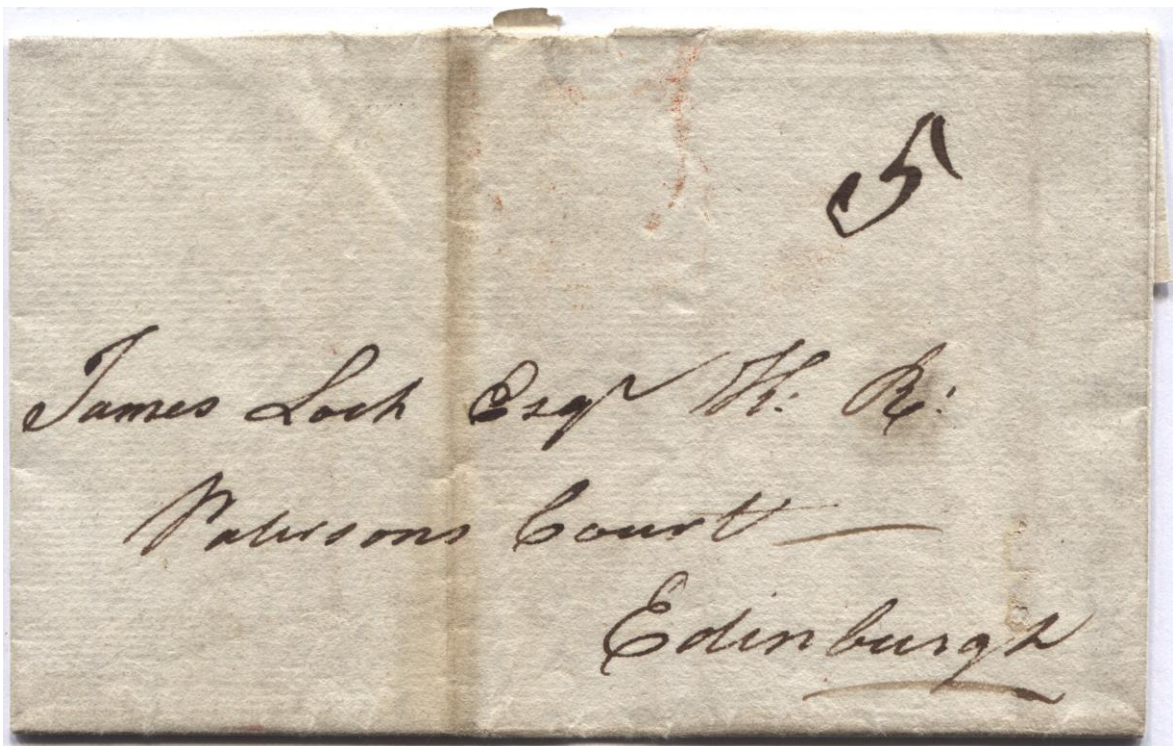 5
James Loch Esqr K: R:
Patersons Court
Edinburgh